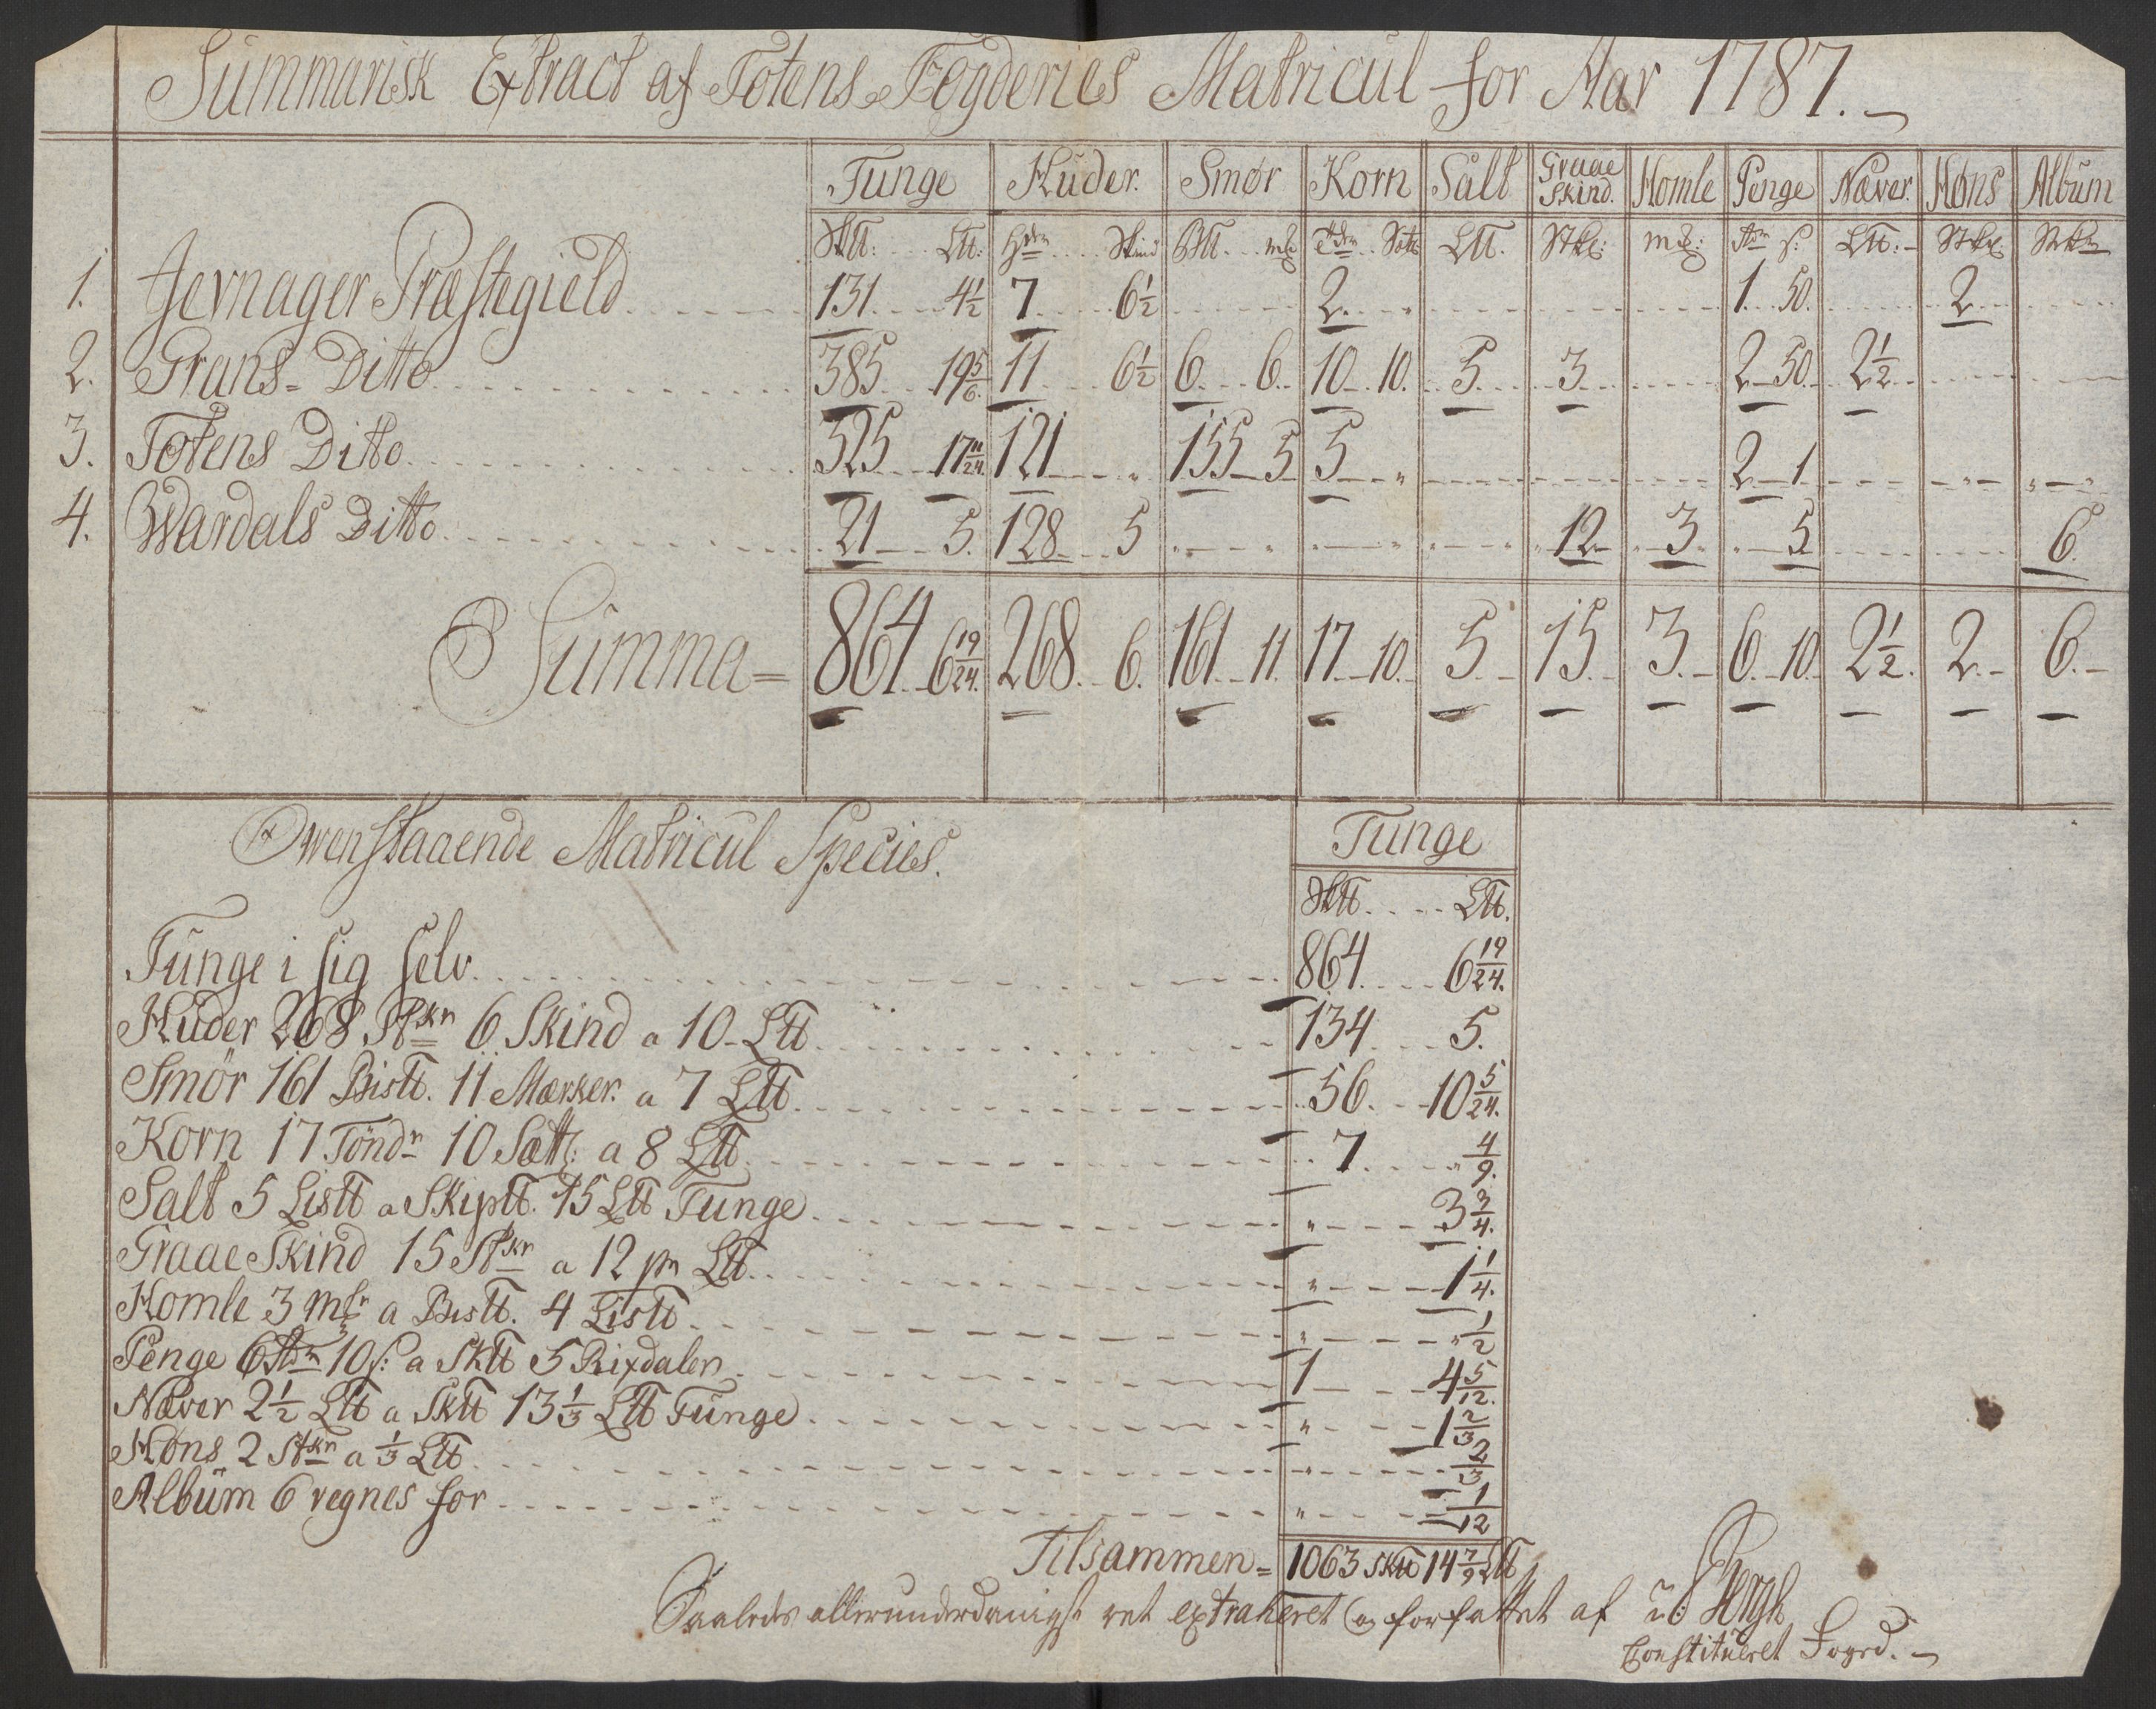 Summarisk Extract af Totens Fogderies Matricul for Aar 1787.
Tunge Huder. Smør Korn Salt Graae Skind. Homle Penge Næver. Høns Album
Sktt: Ltt: Hdr Skind Btt. mk Tdr Sætt Ltt. Stkr: mk: rdr s: Ltt: Stkr Stkr
1. Jevnager Præstegield 131 4 1/2 7 6 1/2 2 „ 1 50. 2
2. Grans Ditto 385 19 5/6. 11 6 1/2 6 6 10 10. 5 3 2 50. 2 1/2
3. Totens Ditto 325 17 11/24. 121 „ 155 5 5 „ 2 1
4. Wardals Ditto 21 5. 128 5 12 3 5 6.
Summa = 864 6 19/24. 268. 6. 161 11. 17 10. 5. 15. 3. 6 10. 2 1/2. 2. 6.
Owenstaaende Matricul Species.
Tunge
Sktt. Ltt.
Tunge i sig selv 864 6 19/24.
Huder 268 Stkr 6 Skind a 10 Ltt 134 5.
Smør 161 Bistt. 11 Marker. a 7 Ltt 56. 10 5/24.
Korn 17 Tøndr 10 Sætt: a 8 Ltt 7 „ 4/9.
Salt 5 Listt a Skiptt. 15 Ltt Tunge „ 3 3/4.
Graae Skind 15 Stkr a 12 pr Ltt „ 1 1/4.
Homle 3 mkr a Bistt. 4 Listt „ „ 1/2
Penge 6 rdr 10 s: a Sktt 5 Rixdaler 1 4 5/12.
Næver 2 1/2 Ltt a Sktt 13 1/3 Ltt Tunge „ 1 2/3
Høns 2 Stkr a 1/3 Ltt „ 2/3
Album 6 regnes for „ 1/12
Tilsammen = 1063 Sktt 14 7/9 Ltt
Saaledes allerunderdanigst ret extraheret og forfattet af
Constitueret Foged.